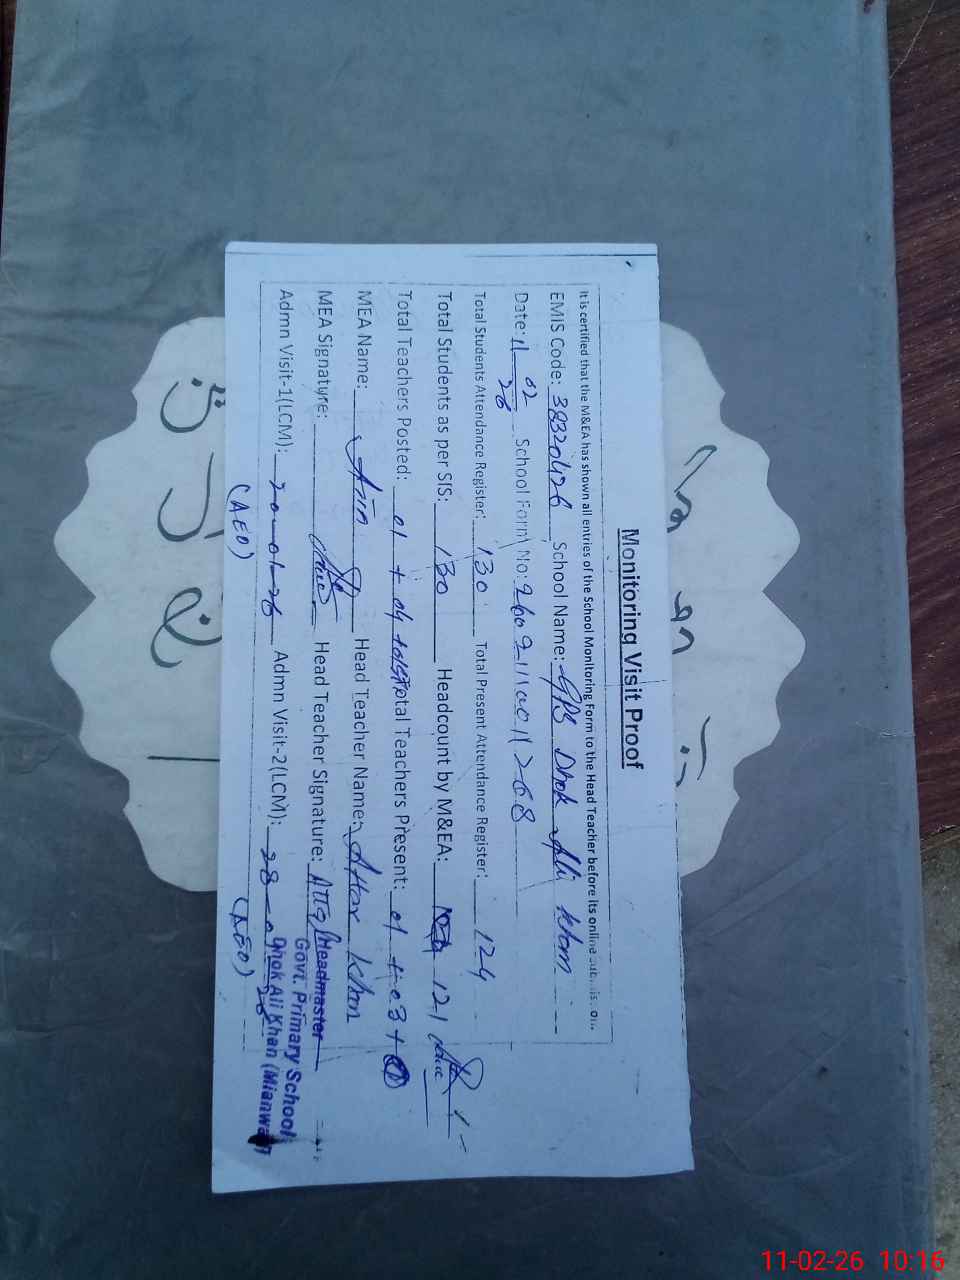 Monitoring Visit Proof
It is certified that the M&EA has shown all entries of the School Monitoring Form to the Head Teacher before its online submission.
EMIS Code: 38320426 School Name: GPS Dhok Ali Khan
Date: 11-02-26 School Form No:
Total Students Attendance Register: 130 Total Present Attendance Register: 124
Total Students as per SIS: 130 Headcount by M&EA: 121
Total Teachers Posted: 01 + 04 + Total Teachers Present: 01 + 03 +
MEA Name: Head Teacher Name: Attar Khan
MEA Signature: Head Teacher Signature:
Headmaster
Govt. Primary School
Dhok Ali Khan (Mianwali)
Admn Visit-1(LCM): 20-01-26 Admn Visit-2(LCM): 28
(AEO) (AEO)
11-02-26 10:16